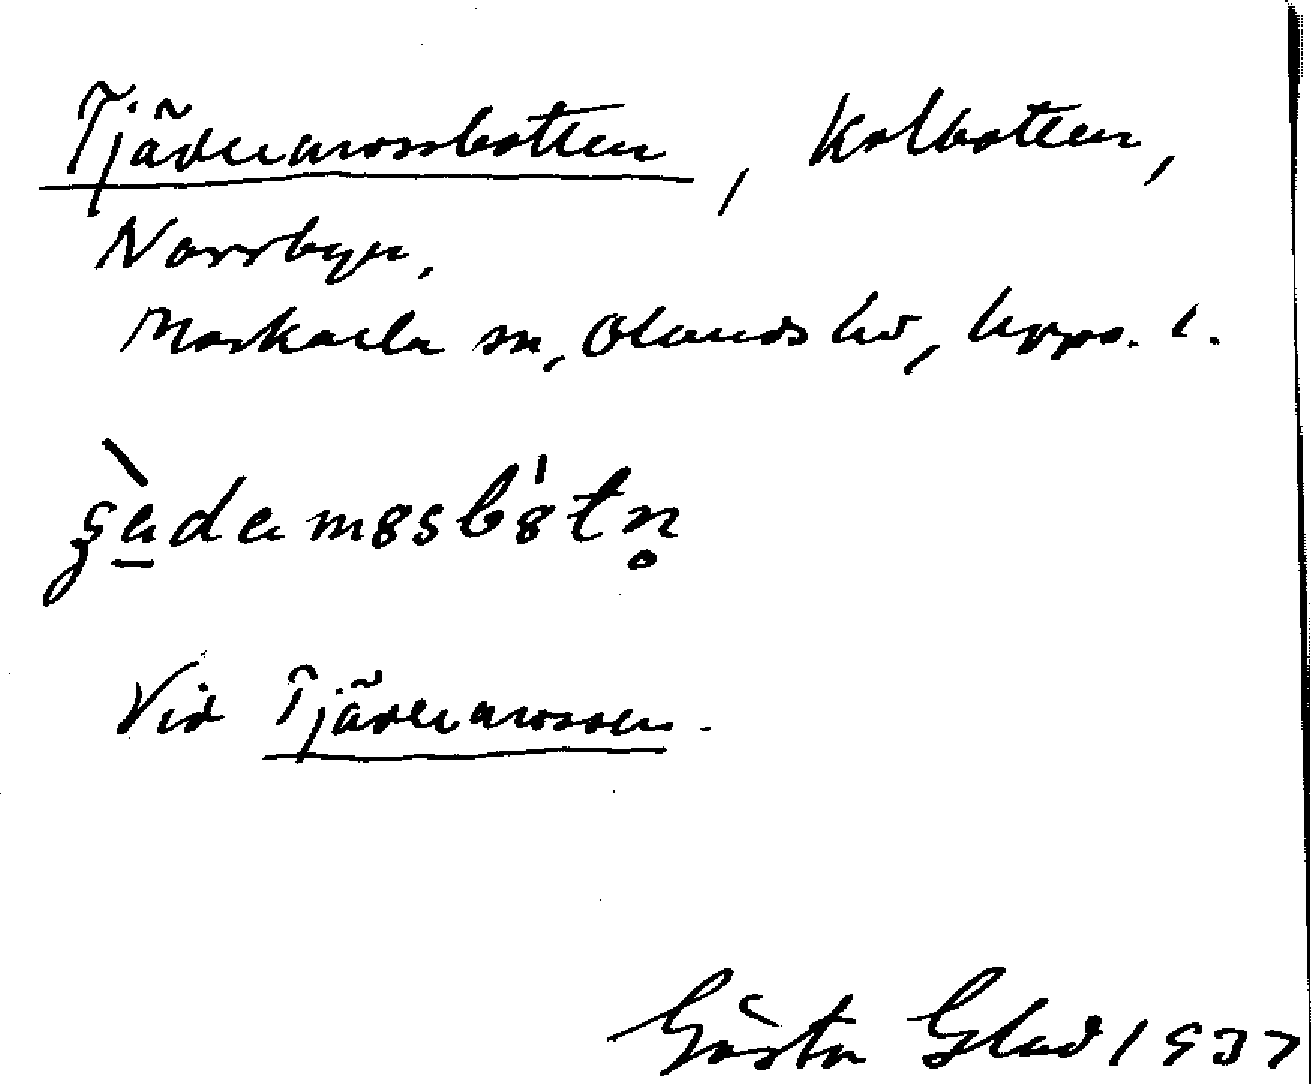 Tjädermossbotten, Kolbotten,
Norrbyn,
Morkarla sn, Olands hd, Upps. l.
Vid Tjädermossen.
Gösta Glad 1937